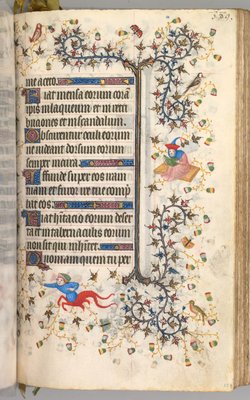 me aceto.
Fiat mensa eorum corā
ipis in laqueum et in retri
bugiones et in scandalum.
Obscurentur oculi eorum
ne uideant dorsum eorum
semper incurua.
Effunde super eos iram
tuam et furor ire tue comp
hat eos.
Fiat habitacio eorum deser
ta et in tabernaculis eorum
non sit qui inhitet.
Quoniam quem tu per